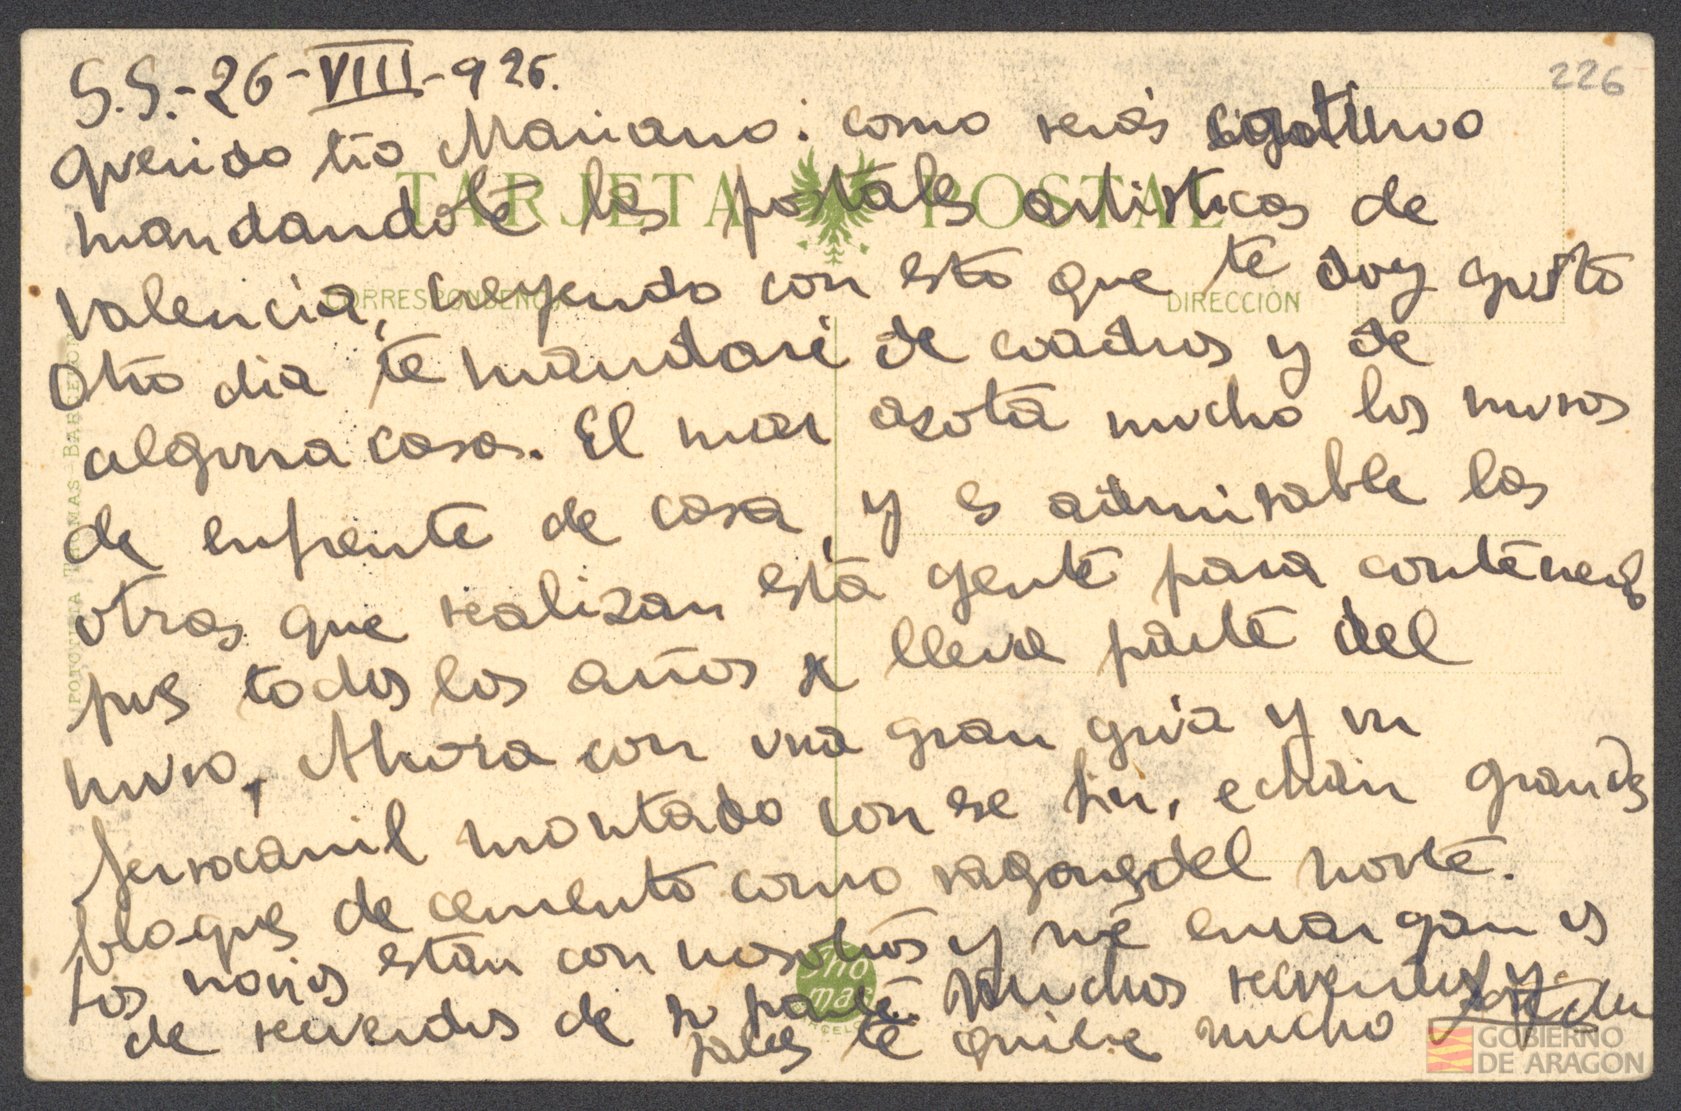 S.S.-26-VIII-925.
226
Querido tío Mariano: como verás continuo
TARJETA POSTAL
mandandote las postales artisticas de
Valencia, creyendo con esto que te doy gusto
CORRESPONDENCIA
DIRECCIÓN
Otro dia te mandaré de cuadros y de
alguna cosa. El mar azota mucho los muros
de enfrente de casa, y es admirable las
otras que realizan esta gente para contenerlo
pues todos los años se lleva parte del
muro, Ahora con una gran grúa y un
ferrocarril montado con ese fin, echan grandes
bloques de cemento como vagones del norte.
Los novios están con nosotros y me encargan os
de recuerdos de su parte. Muchos recuerdos y
sabes te quiere mucho
FOTOTIPIA THOMAS-BARCELONA
Thomas
GOBIERNO
DE ARAGON